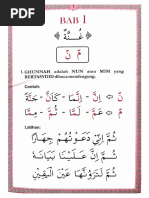 BAB 1
غُنَّةٌ
مّ نّ
GHUNNAH adalah NUN atau MIM yang
BERTASYDID dibaca mendengung.
Contoh:
نّ ⇦ إِنَّ – إِنَّمَا – كَأَنَّ – جَنَّةٌ
مّ ⇦ ثُمَّ – عَمَّ – مِمَّا
Latihan:
ثُمَّ إِنِّي دَعَوْتُهُمْ جِهَارًا
ثُمَّ إِنَّ عَلَيْنَا بَيَانَهُ
ثُمَّ لَتَرَوُنَّهَا عَيْنَ الْيَقِينِ